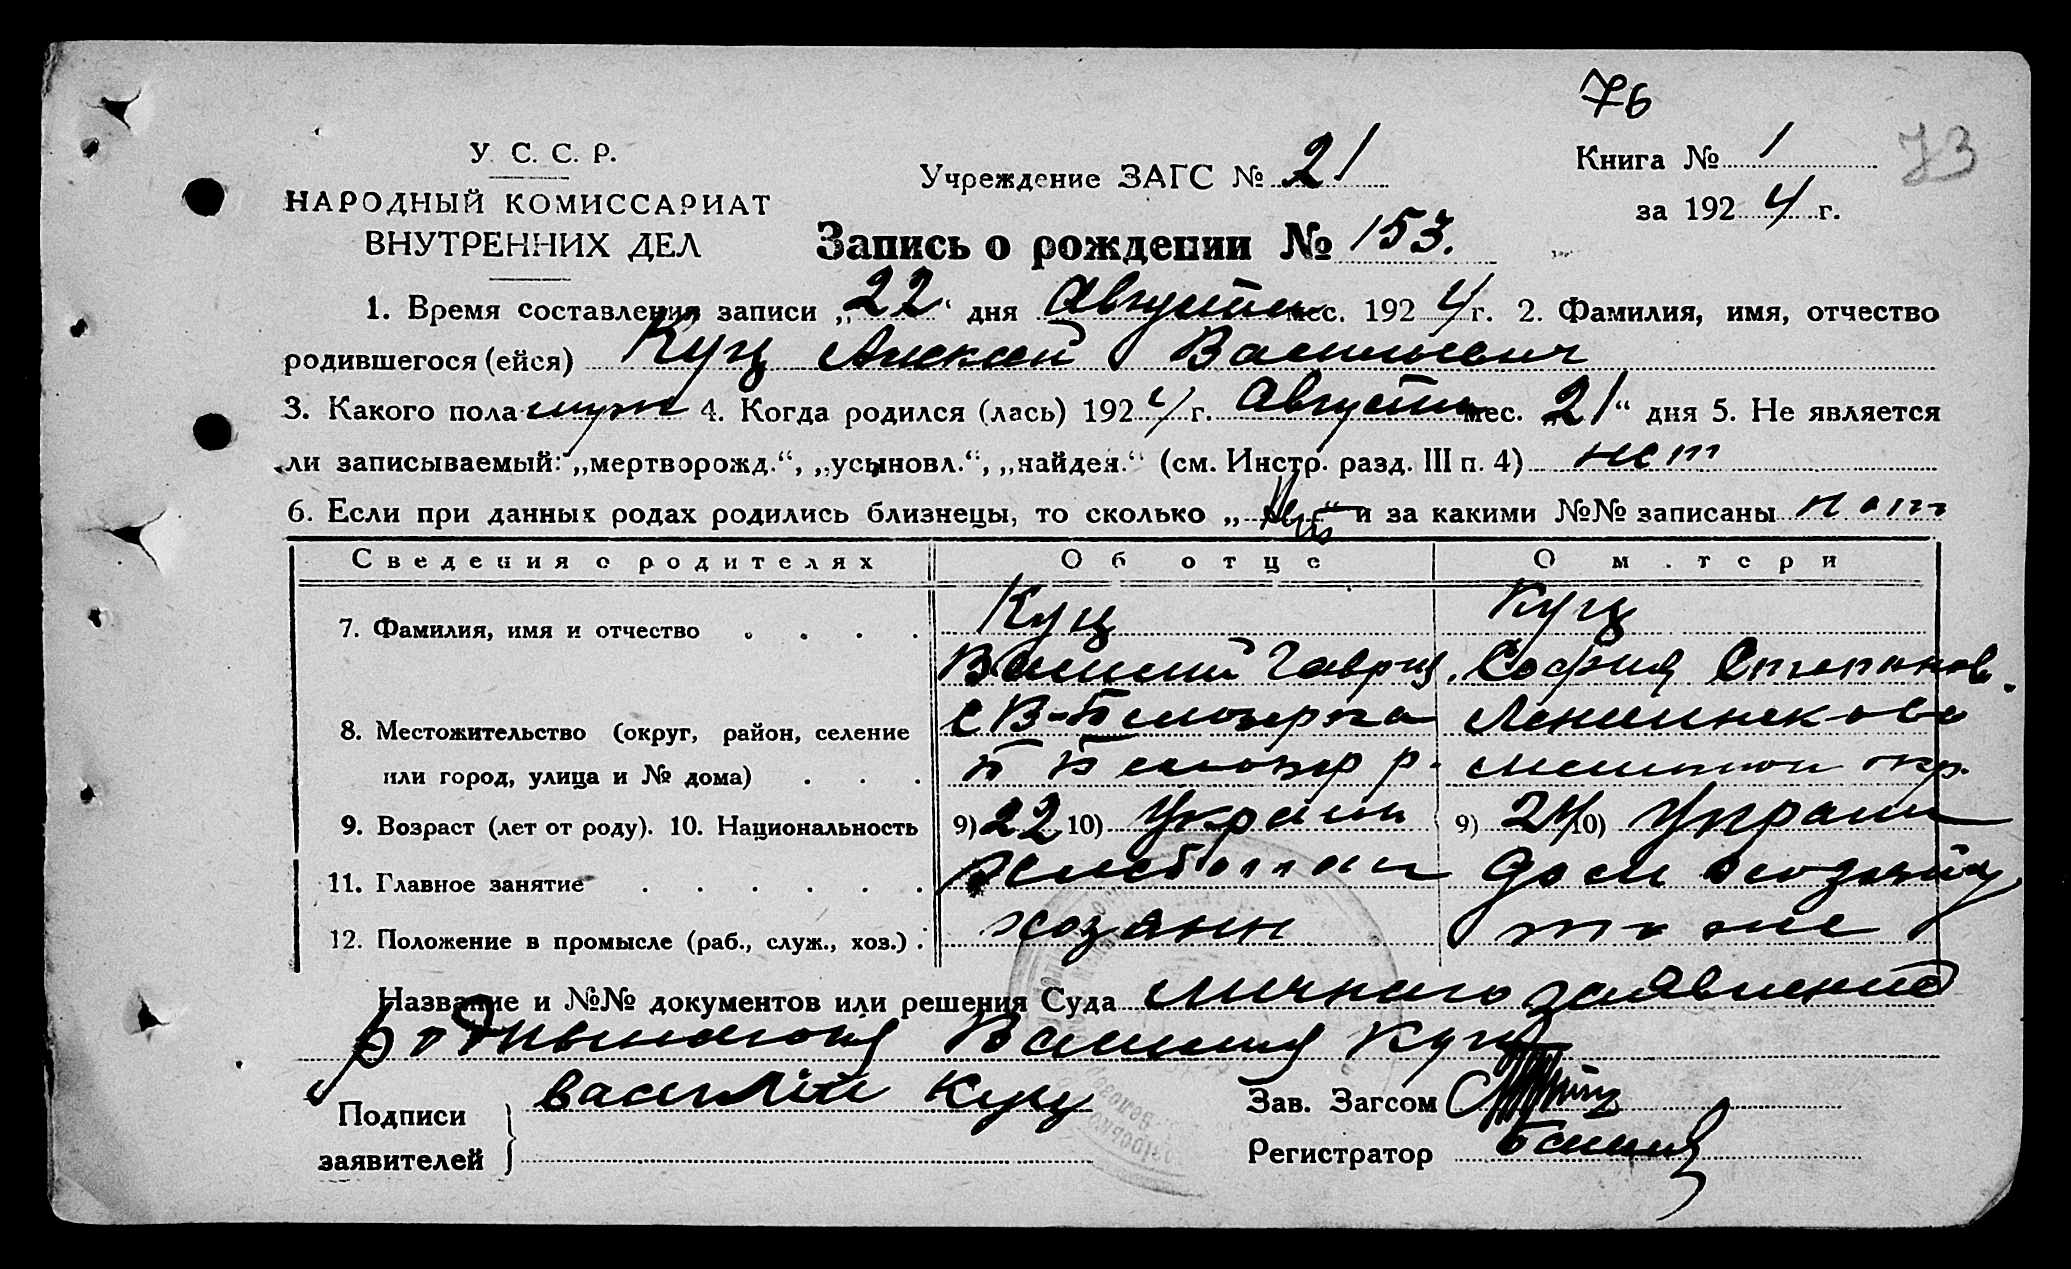 76
У. С. С. Р.
Учреждение ЗАГС № 21
Книга № 1
73
НАРОДНЫЙ КОМИССАРИАТ
за 1924 г.
ВНУТРЕННИХ ДЕЛ
Запись о рождении № 153.
1. Время составления записи „22“ дня Августа мес. 1924 г. 2. Фамилия, имя, отчество
родившегося (ейся) Куц Алексей Васильевич
3. Какого пола муж 4. Когда родился (лась) 1924 г. Августа мес. „21“ дня 5. Не является
ли записываемый: „мертворожд.“, „усыновл.“, „найден.“ (см. Инстр. разд. III п. 4) нет
6. Если при данных родах родились близнецы, то сколько „ “ и за какими №№ записаны нет
Сведения о родителях Об отце О м.тери
7. Фамилия, имя и отчество Куц Куц
Василий Гаврил. София Степанов.
8. Местожительство (округ, район, селение с В-Белозерка
или город, улица и № дома) Белозер р. окр.
9. Возраст (лет от роду). 10. Национальность 9) 22 10) Украин 9) 24 10) Украин
11. Главное занятие Хлебопаш Дом хозяйка
12. Положение в промысле (раб., служ., хоз.) хозяин то же
Название и №№ документов или решения Суда личного заявление
Василия Куц
Подписи
заявителей
василий Куц
Зав. Загсом
Регистратор